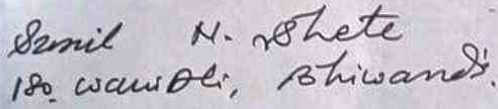 Sunil N. Shete
180. wawoli, Bhiwandi.